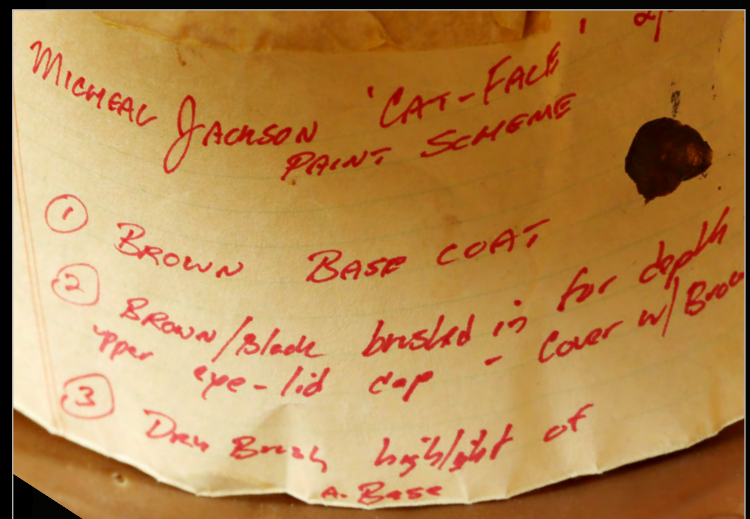 MICHEAL JACKSON 'CAT-FACE'
PAINT SCHEME
① BROWN BASE COAT
② BROWN/Black brushed in for depth
upper eye-lid cap - Cover w/ Brow
③ Dry Brush highlight of
A. Base